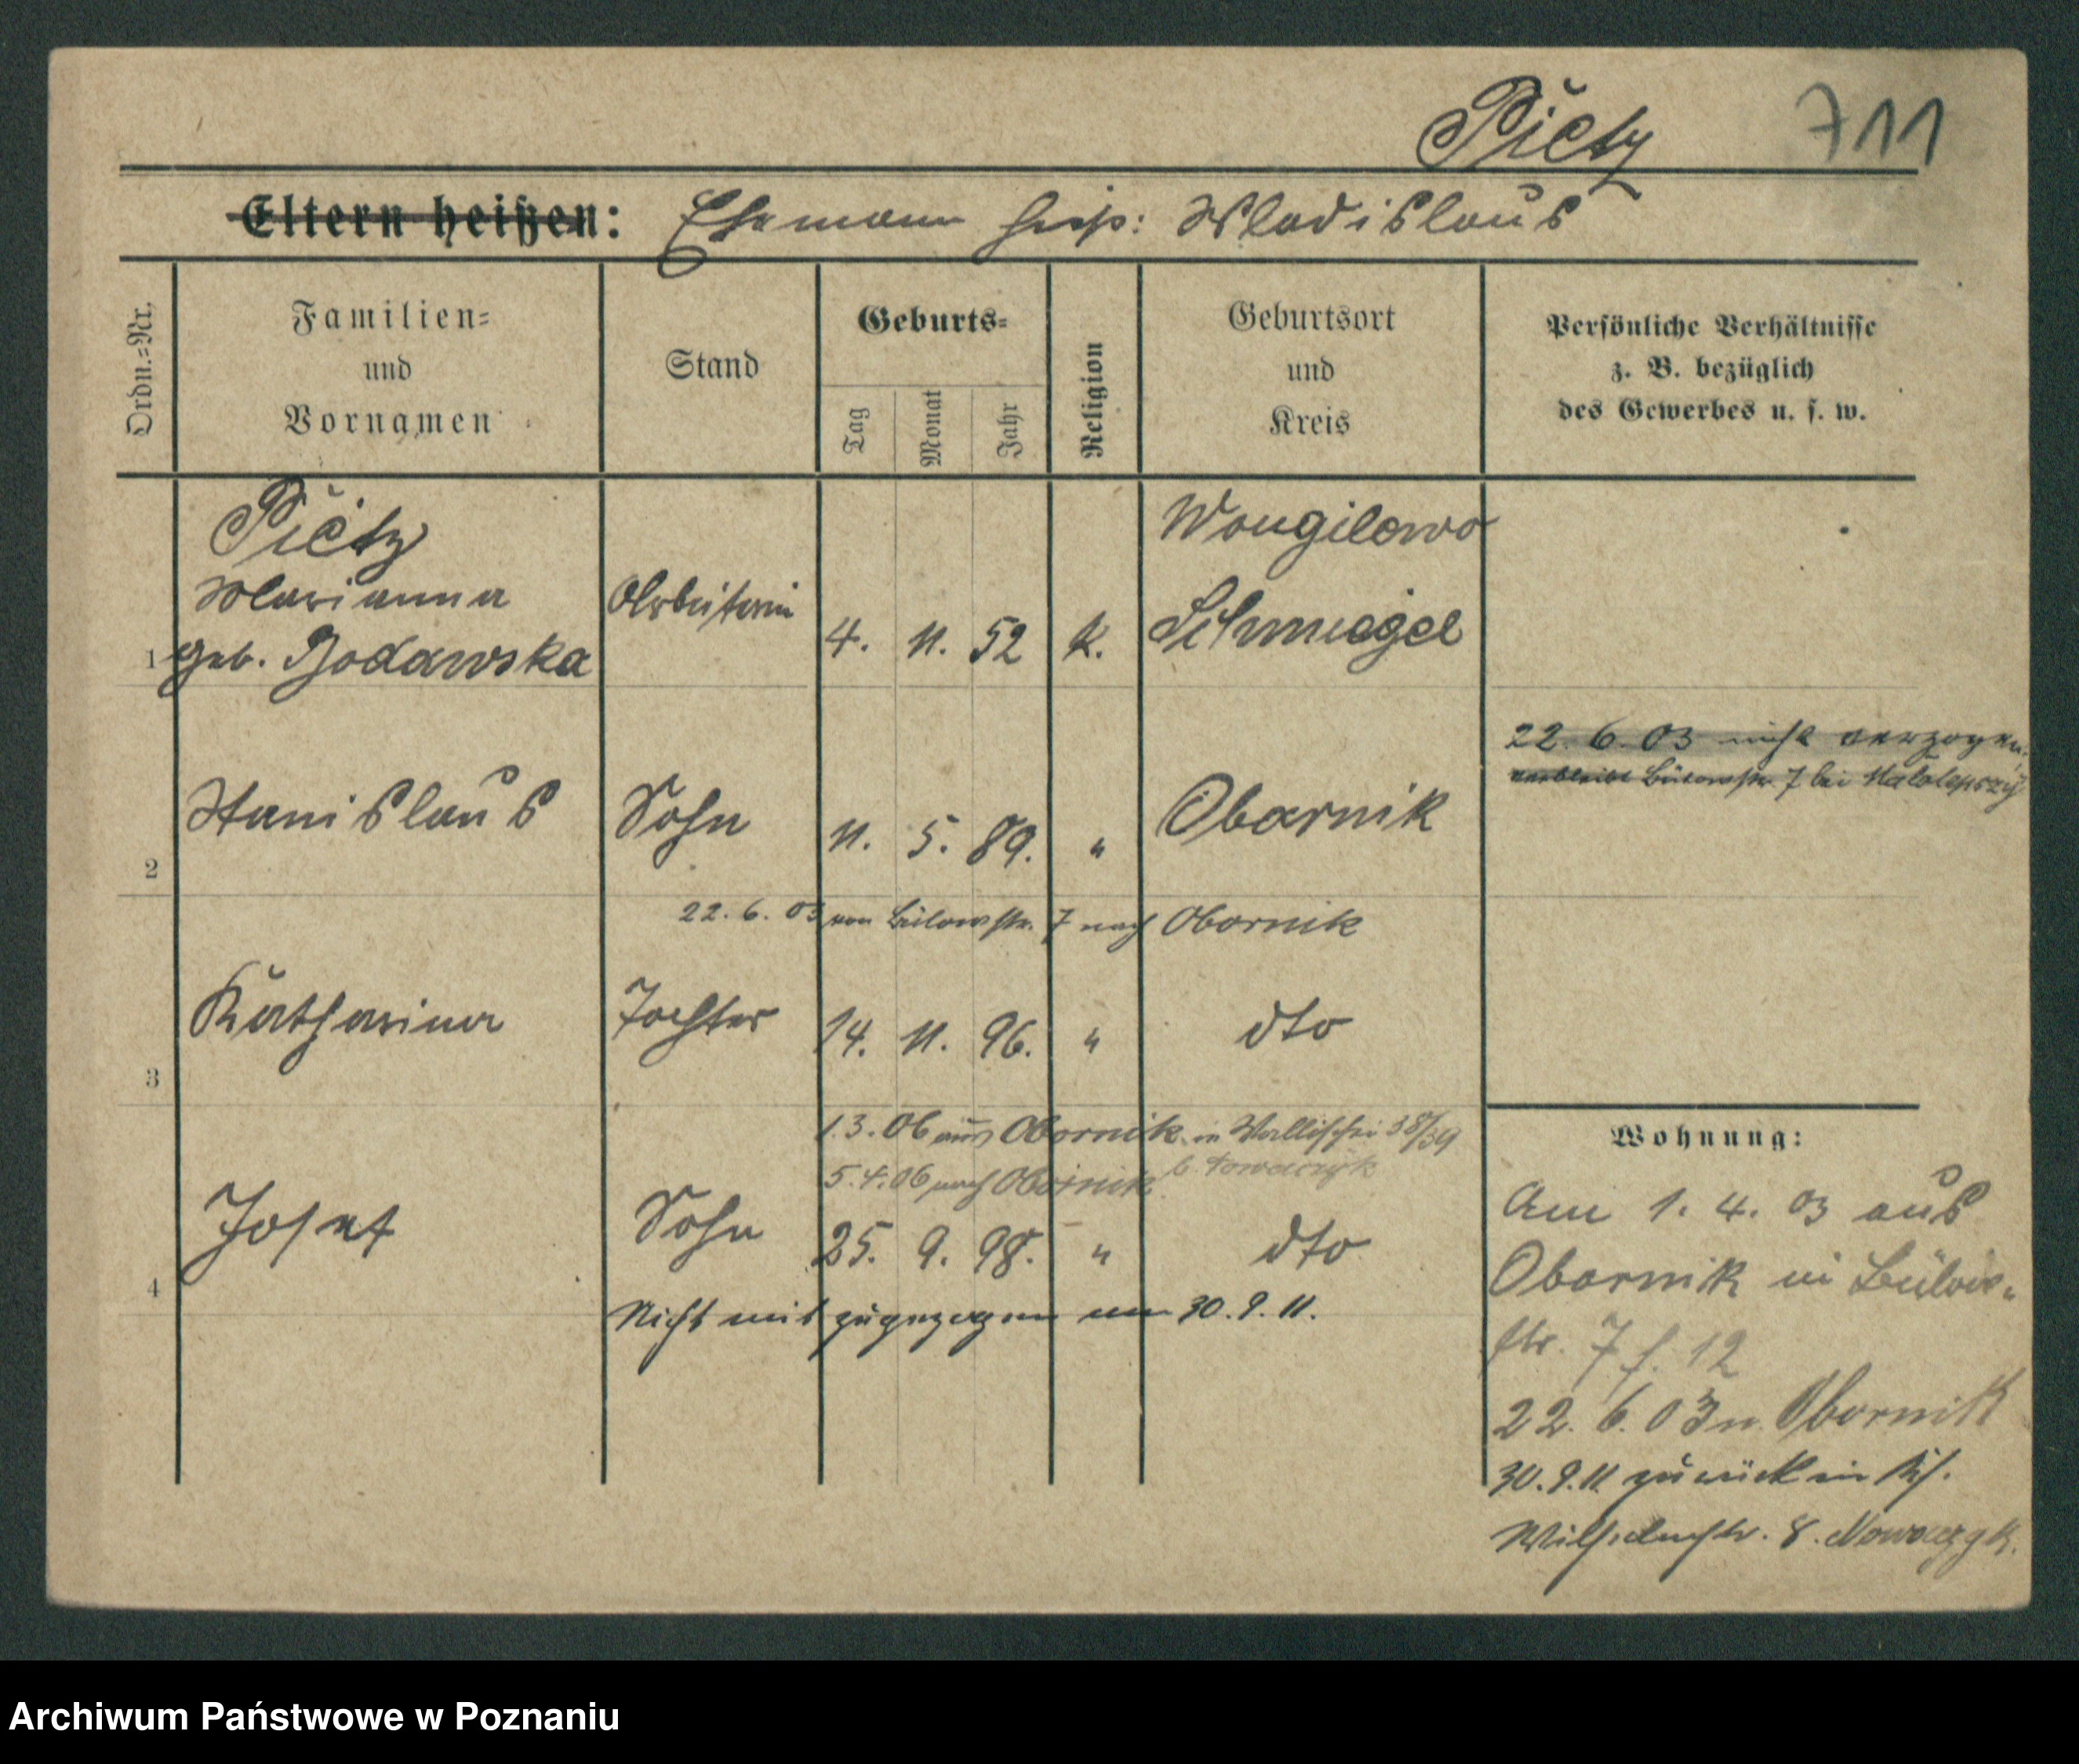 Pietz 711
Eltern heißen: Ehemann hieß: Wladislaus
Ordn.=Nr.
Familien=
und
Vornamen
Stand
Geburts=
Tag
Monat
Jahr
Religion
Geburtsort
und
Kreis
Persönliche Verhältnisse
z. B. bezüglich
des Gewerbes u. s. w.
Pietz
Marianna
1 geb. Bodawska
Arbeiterin
4. 11. 52 K.
Wongilewo
Schmiegel
22. 6. 03 nicht verzogen
verbleibt Bülowstr. 7 bei
2 Stanislaus Sohn 11. 5. 89. " Obornik
22. 6. 03 von Bülowstr. 7 nach Obornik
3 Katharina Tochter 14. 11. 96. " dto
1.3.06 aus Obornik in Wallischei 38/39
5.4.06 nach Obornik b.
4 Josef Sohn 25. 9. 98. " dto
Nicht mit zugezogen am 30.9.11.
Wohnung:
Am 1. 4. 03 aus
Obornik in Bülow-
str. 7 f. 12
22. 6. 03 n. Obornik
30.9.11 zurück in
Wilhelmstr. 8. Nowaczyk.
Archiwum Państwowe w Poznaniu